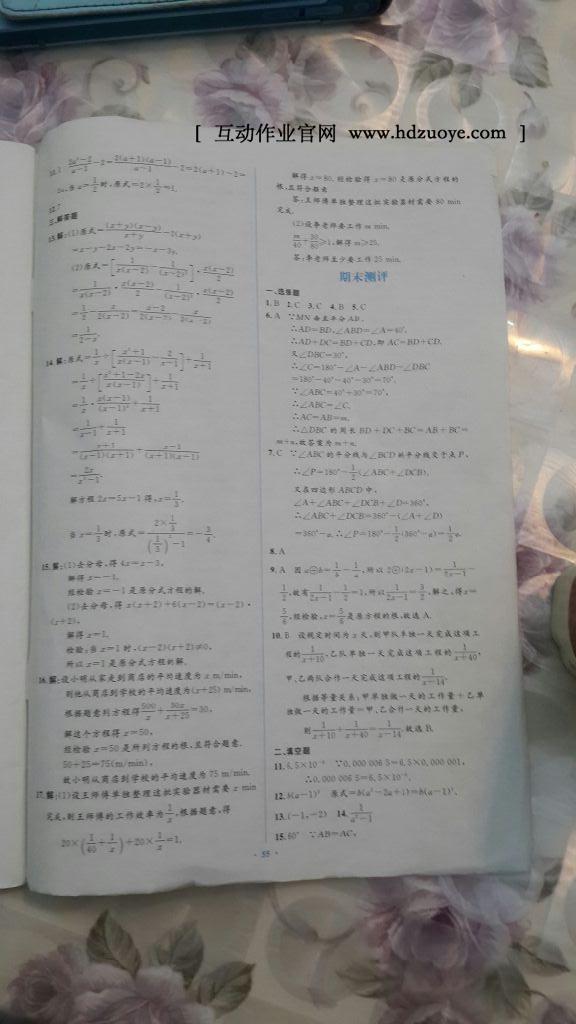 [ 互动作业官网 www.hdzuoye.com ]
2a²-2/a-1 -2=2(a+1)(a-1)/a-1 -2=2(a+1)-2=
2a,当a=1/2时,原式=2×1/2=1.
三、解答题
13.解:(1)原式=(x+y)(x-y)/x+y -2(x+y)
=x-y-2x-2y=-x-3y.
=1/2-x.
14.解:原式=1/x÷[x²+1/x(x-1) - 2/x-1]+1/x+1
=1/x÷[x²+1-2x/x(x-1)]+1/x+1
=1/x·x(x-1)/(x-1)²+1/x+1
=1/x-1+1/x+1
=x+1/(x-1)(x+1)+x-1/(x+1)(x-1)
=2x/x²-1.
解方程2x=5x-1得,x=1/3.
当x=1/3时,原式=2×1/3/(1/3)²-1=-3/4.
15.解:(1)去分母,得4x=x-3,
解得x=-1,
经检验x=-1是原分式方程的解.
(2)去分母,得x(x+2)+6(x-2)=(x-2)·
(x+2),
解得x=1,
检验:当x=1时,(x-2)(x+2)≠0,
所以x=1是原分式方程的解.
16.解:设小明从家走到商店的平均速度为x m/min,
则他从商店到学校的平均速度为(x+25) m/min,
根据题意列方程得500/x+30x/x+25=30,
解这个方程得x=50,
经检验x=50是所列方程的根,且符合题意.
50+25=75(m/min),
故小明从商店到学校的平均速度为75 m/min.
17.解:(1)设王师傅单独整理这批实验器材需要x min
完成,则王师傅的工作效率为1/x,根据题意,得
20×(1/40+1/x)+20×1/x=1,
解得x=80,经检验得x=80是原分式方程的
根,且符合题意
答:王师傅单独整理这批实验器材需要80 min
完成.
(2)设李老师要工作m min,
m/40+30/80≥1,解得m≥25.
答:李老师至少要工作25 min.
期末测评
一、选择题
1.B 2.C 3.C 4.B 5.C
6.A ∵MN垂直平分AB,
∴AD=BD,∠ABD=∠A=40°,
∴AD+DC=BD+CD,即AC=BD+CD,
又∠DBC=30°,
∴∠C=180°-∠A-∠ABD-∠DBC
=180°-40°-40°-30°=70°,
∵∠ABC=40°+30°=70°,
∴∠ABC=∠C,
∴AC=AB=m,
∴△DBC的周长BD+DC+BC=AB+BC=
m+n,故答案为m+n.
7.C ∵∠ABC的平分线与∠BCD的平分线交于点P,
∴∠P=180°-1/2(∠ABC+∠DCB).
又在四边形ABCD中,
∠A+∠ABC+∠DCB+∠D=360°,
∴∠ABC+∠DCB=360°-(∠A+∠D)
=360°-α,∴∠P=180°-1/2(360°-α)=1/2α.
8.A
9.A 因a⊕b=1/b-1/a,所以2⊕(2x-1)=1/2x-1-
1/2,故有1/2x-1-1/2=1,所以1/2x-1=3/2,解之,得x=
5/6,经检验,x=5/6是原方程的根,故选A.
10.B 设规定时间为x天,则甲队单独一天完成这项工
程的1/x+10,乙队单独一天完成这项工程的1/x+40,
甲、乙两队合作一天完成这项工程的1/x-14.
根据等量关系:甲单独做一天的工作量+乙单
独做一天的工作量=甲、乙合作一天的工作量,
则1/x+10+1/x+40=1/x-14.故选B.
二、填空题
11.6.5×10⁻⁶ ∵0.000 006 5=6.5×0.000 001,
∴0.000 006 5=6.5×10⁻⁶.
12.b(a-1)² 原式=b(a²-2a+1)=b(a-1)².
13.(-1,-2) 14.1/a²-1
15.60° ∵AB=AC,
· 55 ·